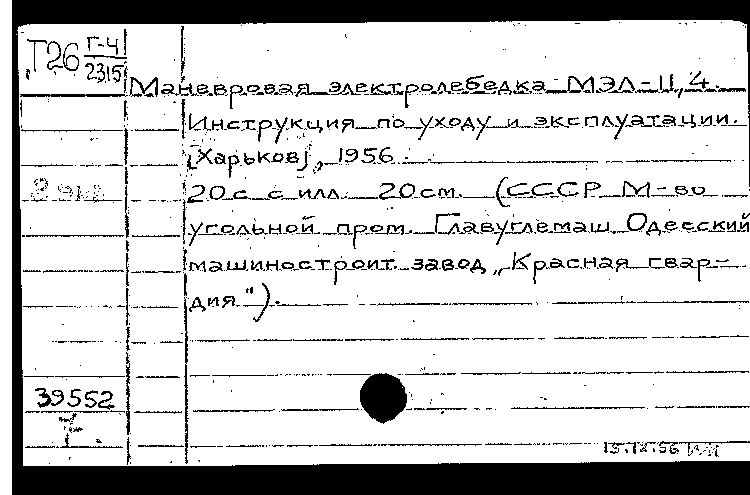 Т26 Г-4
2315
Маневровая электролебедка МЭЛ-11,4.
Инструкция по уходу и эксплуатации.
[Харьков], 1956.
20 с. с илл. 20 см. (СССР М-во
угольной пром. Главуглемаш Одесский
машиностроит. завод "Красная гвар-
дия").
39552
15.IX.56